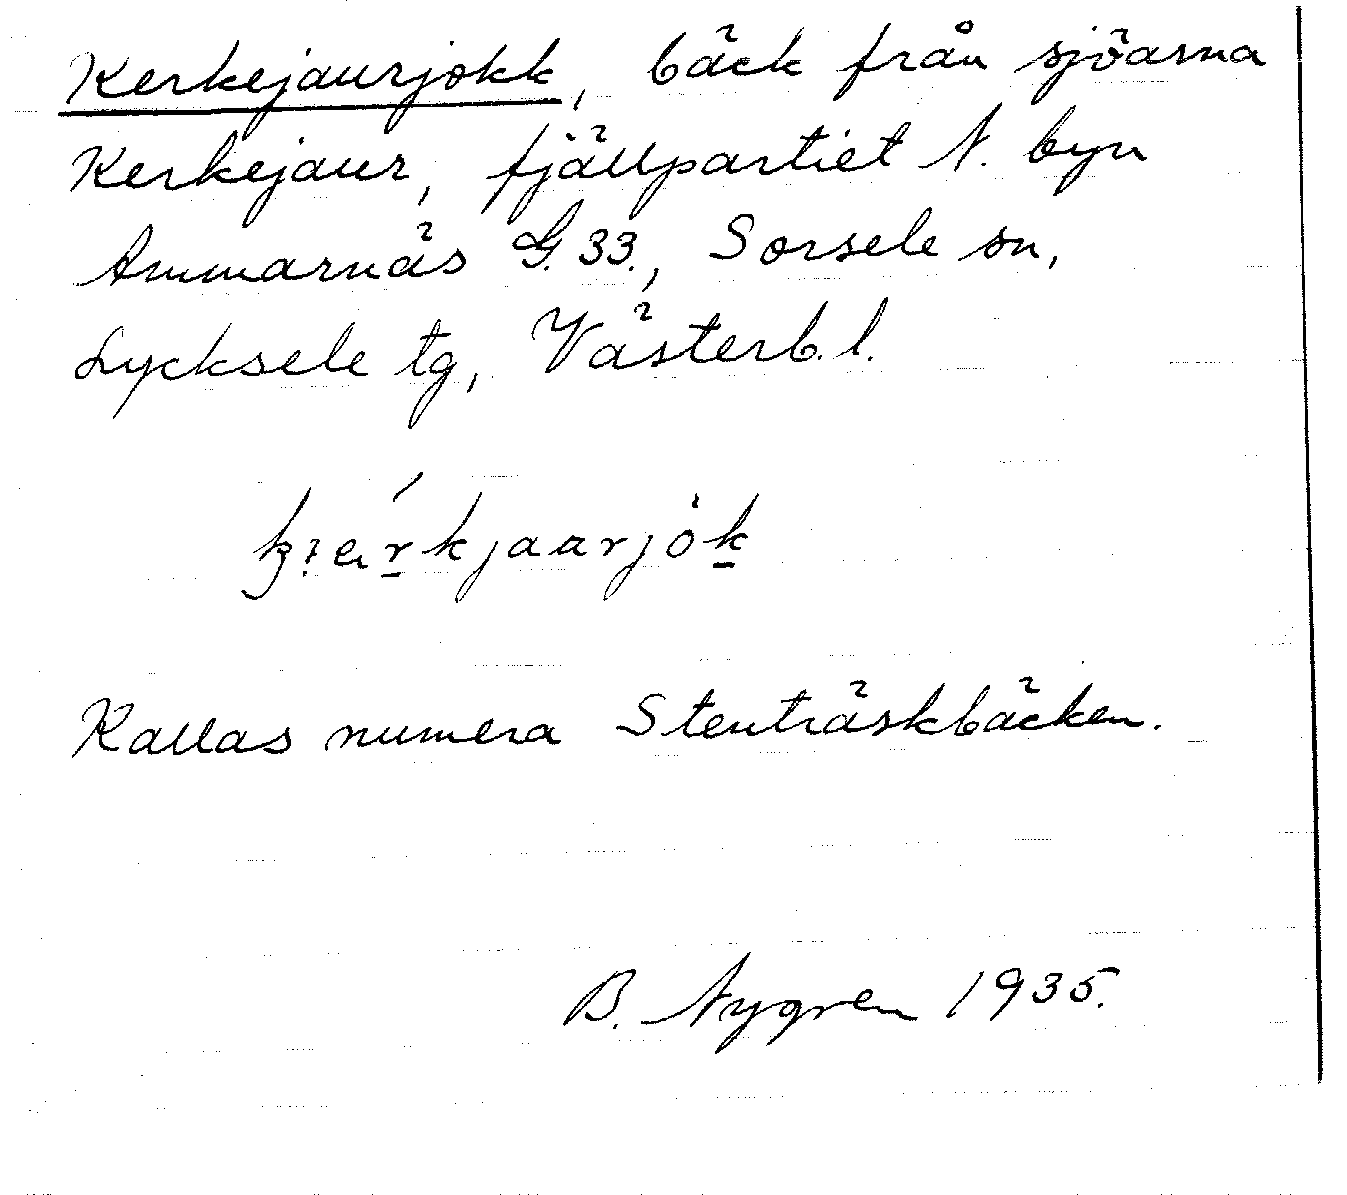 Kerkejaurjokk, bäck från sjöarna
Kerkejaur, fjällpartiet N. byn
Ammarnäs G. 33., Sorsele sn,
Lycksele tg, Västerb. l.
Kallas numera Stenträskbäcken.
B. Nygren 1935.